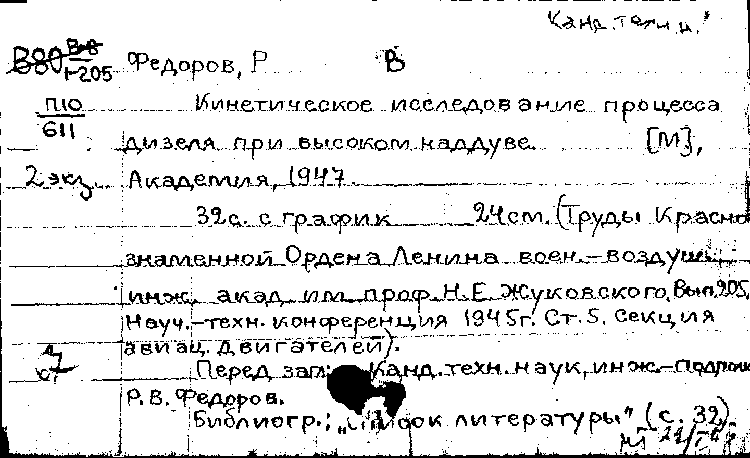 Канд. техн. н.
В80 В-8 Федоров, Р В
1-205
П10 Кинетическое исследование процесса
611 дизеля при высоком наддуве. [М],
2 экз. Академия, 1947.
32с. с график 24см. (Труды Красно
знаменной Ордена Ленина воен.-воздуш.
инж. акад им. проф. Н.Е. Жуковского. Вып. 205.
Науч.-техн. конференция 1945г. Ст. 5. Секция
авиац. двигателей).
Перед заг: Канд. техн. наук, инж.-подполк
Р.В. Федоров.
Библиогр.: "Список литературы" (с. 32)